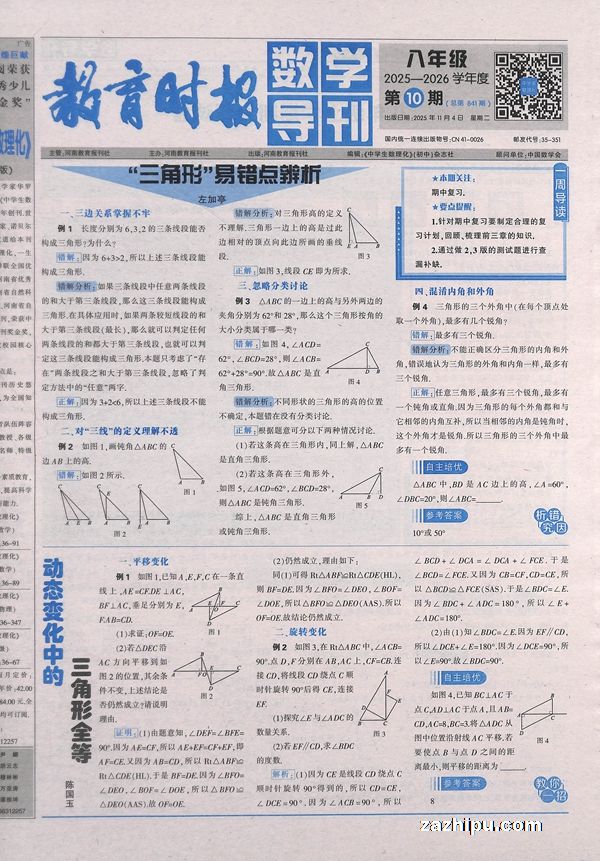 教育时报
数学
导刊
八年级
2025—2026 学年度
第 10 期(总第 841 期)
出版日期:2025 年 11 月 4 日 星期二
国内统一连续出版物号:CN 41-0026 邮发代号:35-351
主管:河南教育报刊社 主办:河南教育报刊社 出版:河南教育报刊社 编辑:《中学生数理化》(初中)杂志社 顾问单位:中国数学会
“三角形”易错点辨析
左加亭
一、三边关系掌握不牢
例 1 长度分别为 6,3,2 的三条线段能否
构成三角形?为什么?
错解:因为 6+3>2,所以上述三条线段能
构成三角形.
错解分析:如果三条线段中任意两条线段
的和大于第三条线段,那么这三条线段能构成
三角形.在具体应用时,如果两条较短线段的和
大于第三条线段(最长),那么就可以判定任何
两条线段的和都大于第三条线段,也就可以判
定这三条线段能构成三角形.本题只考虑了“存
在”两条线段之和大于第三条线段,忽略了判
定方法中的“任意”两字.
正解:因为 3+2<6,所以上述三条线段不能
构成三角形.
二、对“三线”的定义理解不透
例 2 如图 1,画钝角△ABC 的
边 AB 上的高.
错解:如图 2 所示.
图 1
图 2
错解分析:对三角形高的定义
不理解.三角形一边上的高是过此
边相对的顶点向此边所画的垂线
段.
正解:如图 3,线段 CE 即为所求.
图 3
三、忽略分类讨论
例 3 △ABC 的一边上的高与另外两边的
夹角分别为 62°和 28°,那么这个三角形按角的
大小分类属于哪一类?
错解:如图 4,∠ACD=
62°,∠BCD=28°,则∠ACB=
62°+28°=90°.故△ABC 是直
角三角形.
图 4
错解分析:不同形状的三角形的高的位置
不确定,本题错在没有分类讨论.
正解:根据题意可分以下两种情况讨论.
(1)若这条高在三角形内,同上解,△ABC
是直角三角形.
(2)若这条高在三角形外,
如图 5,∠ACD=62°,∠BCD=28°,
则△ABC 是钝角三角形.
图 5
综上,△ABC 是直角三角形
或钝角三角形.
★本期关注:
期中复习.
★要点提醒:
1.针对期中复习要制定合理的复
习计划,回顾、梳理前三章的知识.
2.通过做 2、3 版的测试题进行查
漏补缺.
一周导读
四、混淆内角和外角
例 4 三角形的三个外角中(在每个顶点处
取一个外角),最多有几个锐角?
错解:最多有三个锐角.
错解分析:不能正确区分三角形的内角和外
角,错误地认为三角形的外角和内角一样,最多有
三个锐角.
正解:任意三角形,最多有三个锐角,最多有
一个钝角或直角;因为三角形的每个外角都和与
它相邻的内角互补,所以当相邻的内角是钝角时,
这个外角才是锐角.所以三角形的三个外角中最
多有一个锐角.
自主培优
△ABC 中,BD 是 AC 边上的高,∠A=60°,
∠DBC=20°,则∠ABC=_____.
参考答案
10°或 50°
析错究因
动态变化中的
三角形全等
陈国玉
一、平移变化
例 1 如图 1,已知 A,E,F,C 在一条直
线上,AE=CF.DE⊥AC,
BF⊥AC,垂足分别为 E,
F.AB=CD.
图 1
(1)求证:OF=OE.
(2)若△DEC 沿
AC 方向平移到如
图 2 的位置,其余条
件不变,上述结论是
否仍然成立?请说明
理由.
图 2
证明:(1)由题意知,∠DEF=∠BFE=
90°.因为 AE=CF,所以 AE+EF=CF+EF,即
AF=CE.又因为 AB=CD,所以 Rt△ABF≌
Rt△CDE(HL).于是 BF=DE.因为∠BFO=
∠DEO,∠BOF=∠DOE,所以△BFO≌
△DEO(AAS).故 OF=OE.
(2)仍然成立,理由如下:
同(1)可得 Rt△ABF≌Rt△CDE(HL),
则 BF=DE.因为∠BFO=∠DEO,∠BOF=
∠DOE,所以△BFO≌△DEO(AAS).所以
OF=OE.故结论仍然成立.
二、旋转变化
例 2 如图 3,在 Rt△ABC 中,∠ACB=
90°.点 D,F 分别在 AB,AC 上,CF=CB.连
接 CD,将线段 CD 绕点 C 顺
时针旋转 90°后得 CE,连接
EF.
(1)探究∠E 与∠ADC 的
数量关系.
(2)若 EF∥CD,求∠BDC
的度数.
图 3
解析:(1)因为 CE 是线段 CD 绕点 C
顺时针旋转 90°得到的,所以 CD=CE,
∠DCE=90°.因为∠ACB=90°,所以
∠BCD+∠DCA=∠DCA+∠FCE.于是
∠BCD=∠FCE.又因为 CB=CF,CD=CE,所
以△BCD≌△FCE(SAS).于是∠BDC=∠E.
因为∠BDC+∠ADC=180°,所以∠E+
∠ADC=180°.
(2)由(1)知∠BDC=∠E.因为 EF∥CD,
所以∠DCE+∠E=180°.因为∠DCE=90°,所
以∠E=90°.故∠BDC=90°.
自主培优
如图 4,已知 BC⊥AC 于
点 C,AD⊥AC 于点 A,且 AB=
CD,AC=8,BC=3.将△ADC 从
图中位置沿射线 AC 平移,若
要使点 B 与点 D 之间的距
离最小,则平移的距离为_____.
图 4
参考答案
8
教你一招
zazhipu.com